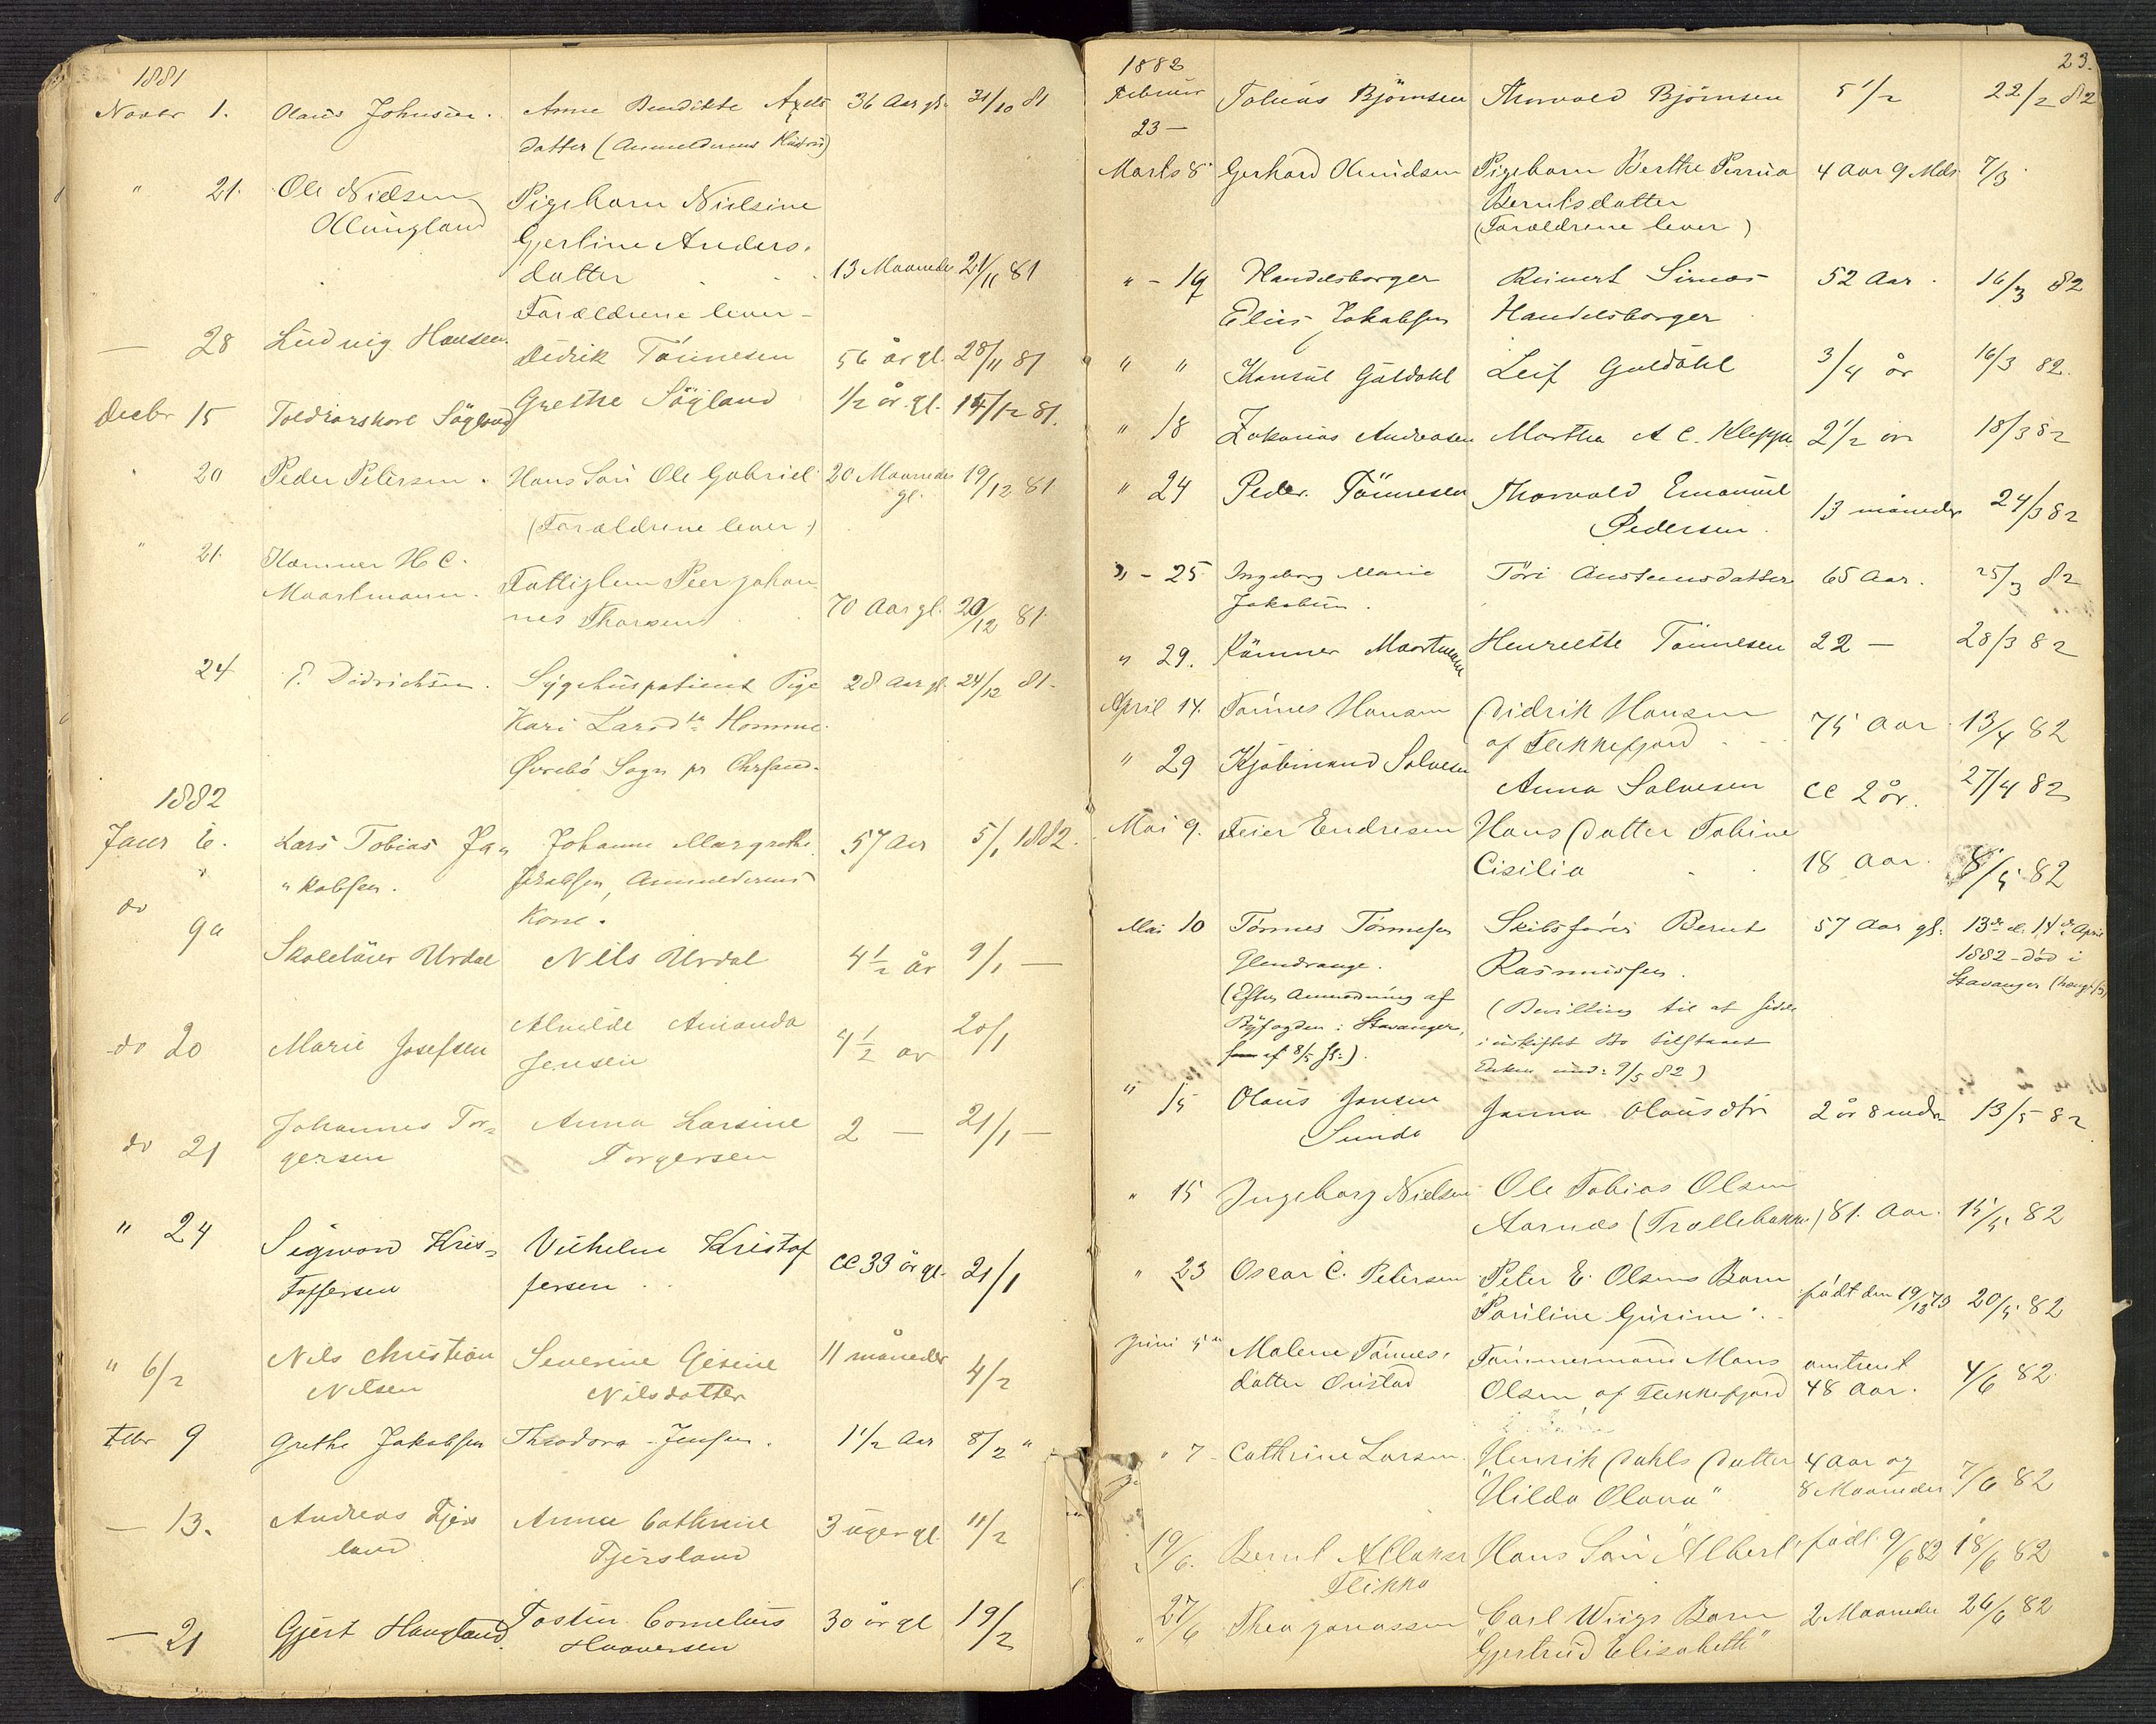 1881
Novbr 1. Olaus Johnsen. Anne Bendikte Axels 36 Aar gl. 31/10 81
datter (Anmelderens Hustru)
" 21. Ole Nielsen Pigebarn Nielsine
Klungland Gjertine Anders-
datter 13 Maaneder 21/11 81
Forældrene lever -
— 28 Ludvig Hansen Didrik Tönnesen 56 år gl. 28/11 81
Decbr 15 Grethe Sögland 1/2 år gl. 14/12 81.
20 Peder Petersen. Hans Sön Ole Gabriel 20 Maaneder 19/12 81
gl.
(Forældrene lever)
" 21. Kæmner H C.
Maartmann. Fattiglem Peer Johan
nes Thorsen 70 Aar gl. 20/12 81.
24 P. Didrichsen. Sygehuspatient Pige 28 Aar gl. 24/12 81-
Kari Larsdtr Homme
Øvrebö Sogn pr Chrsand-
1882
Janr 6. Lars Tobias Ja- Johanne Margrethe 57 Aar 5/1 1882.
" kobsen. Jakobsen, Anmelderens
Kone.
do 9 Skolelärer Urdal Nils Urdal 4 1/2 år 9/1 —
do 20 Marie Josefsen Alvilde Amanda 4 1/2 år 20/1
Jensen
do 21 Johannes Tor- Anna Larsine 2 — 21/1 —
gersen Torgersen
" 24 Sigvard Kris- Vilhelm Kristof cc 33 år gl. 21/1
toffersen fersen
" 6/2 Nils Christian Severine Gesine 11 måneder 4/2
Nilsen Nilsdatter
Febr 9 Grethe Jakobsen Theodora Jensen. 1 1/2 Aar 8/2 "
— 13. Andreas Fjers Anne Cathrine 3 uger gl. 11/2
land Fjersland
— 21 Gjert Haugland Tostin Cornelius 30 år gl 19/2
Haaversen
23.
1882
Februar Tobias Björnsen Thorvald Björnsen 5 1/2 22/2 82
23 —
Marts 8 Gerhard Knudsen Pigebarn Berthe 4 Aar 9 Mdr 7/3
Berntsdatter
(Forældrene lever)
" - 16 Handelsborger Reinert Sirnæs 52 Aar. 16/3 82
Elias Jakobsen Handelsborger
" " Konsul Guldahl Leif Guldahl 3/4 år 16/3 82.
" 18 Zakarias Andreasen Martha A C. Kleppe 2 1/2 år 18/3 82
" 24 Peder Tönnesen Thorvald Emanuel 13 måneder 24/3 82
Pedersen.
" - 25 Ingeborg Marie Töri Austeinsdatter 65 Aar. 25/3 82
Jakobsen.
" 29. Kämner Maartmann Henreette Tönnesen 22 — 28/3 82
April 14. Tönnes Hansen Didrik Hansen 75 Aar 13/4 82
af Flekkefjord
" 29 Salvesen Anna Salvesen cc 2 år. 27/4 82
Mai 9. Peier Endresen Hans Datter Tobine
Cisilia 18 Aar. 8/5 82
Mai 10 Tönnes Tönnesen Skibsförer Bernt 57 Aar gl. 13de el. 14de April
Glendrange. Rasmussen. 1882 - död i
(Efter Anmodning af (Bevilling til at sidde Stavanger
Byfogden i Stavanger, i uskiftet Bo tilstaaet
af 8/5 ) Enken und: 9/5 82)
" 15 Olaus Jansen Janna Olausdtr 2 år 8 mdr 13/5 82
Sunde
" 15 Ingeborg Nielsen Ole Tobias Olsen
Aarnæs (Trollebakke) 81. Aar. 15/5 82
" 23 Oscar C. Petersen Peter E. Olsens Barn født den 19/12 73 20/5 82
"Pauline Gurine".
Juni 5 Malene Tönnes- Tömmermand Mons omtrent 4/6 82
datter Oristad Olsen, af Flekkefjord 48 Aar.
" 7 Cathrine Larsen. Henrik Dahls Datter 4 Aar og 7/6 82
"Hilda Olava" 8 Maaneder
19/6. Bernt Hans Sön "Albert" født 9/6 82 18/6 82
Flikka
" 27/6 Thea Jonassen Carl Wiigs Barn 2 Maaneder 26/6 82
"Gjertrud Elisabeth"